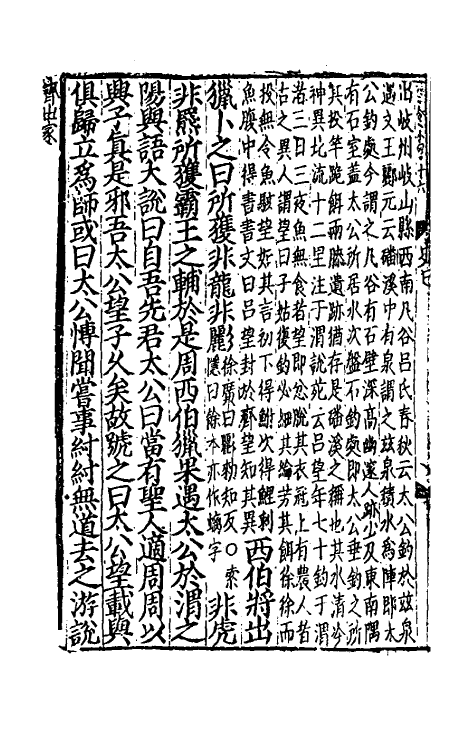 出岐州岐山縣西南凡谷呂氏春秋云太公釣於茲泉
遇文王酈元云磻溪中有泉謂之茲泉積水為陣即太
公釣處今謂之凡谷有石壁深高幽邃人跡少及東南隅
有石室蓋太公所居水次盤石釣處即太公垂釣之所
其投竿跪餌兩膝遺跡猶存是磻溪之稱也其水清泠
神異北流十二里注于渭說苑云呂望年七十釣于渭
渚三日三夜魚無食者望即忿脫其衣冠上有農人者
古之異人謂望曰子姑復釣必細其綸芳其餌徐徐而
投無令魚駭望如其言初下得鮒次得鯉刺
魚腹中得書書文曰呂望封於齊望知其異 西伯將出
獵卜之曰所獲非龍非彲 徐廣曰彲勑知反○索
隱曰徐本亦作螭字 非虎
非羆所獲霸王之輔於是周西伯獵果遇太公於渭之
陽與語大說曰自吾先君太公曰當有聖人適周周以
興子真是邪吾太公望子久矣故號之曰太公望載與
俱歸立為師或曰太公博聞嘗事紂紂無道去之游說